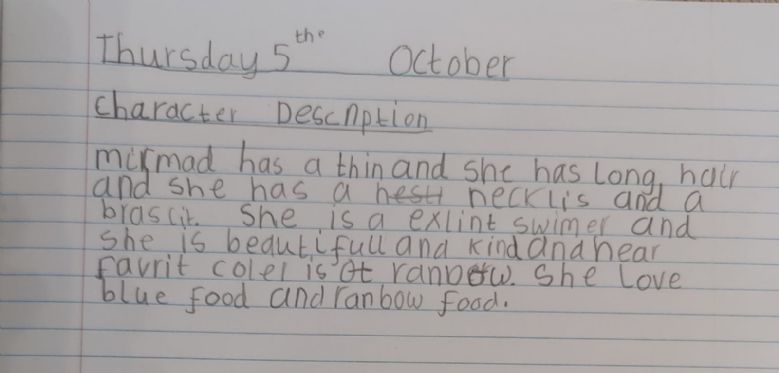 Thursday 5the October
Character Description
mirmad has a thin and she has long hair
and she has a necklis and a
braslit. She is a exlint swimer and
she is beautifull and kind and hear
favrit coler is ranbow. She love
blue food and ranbow food.